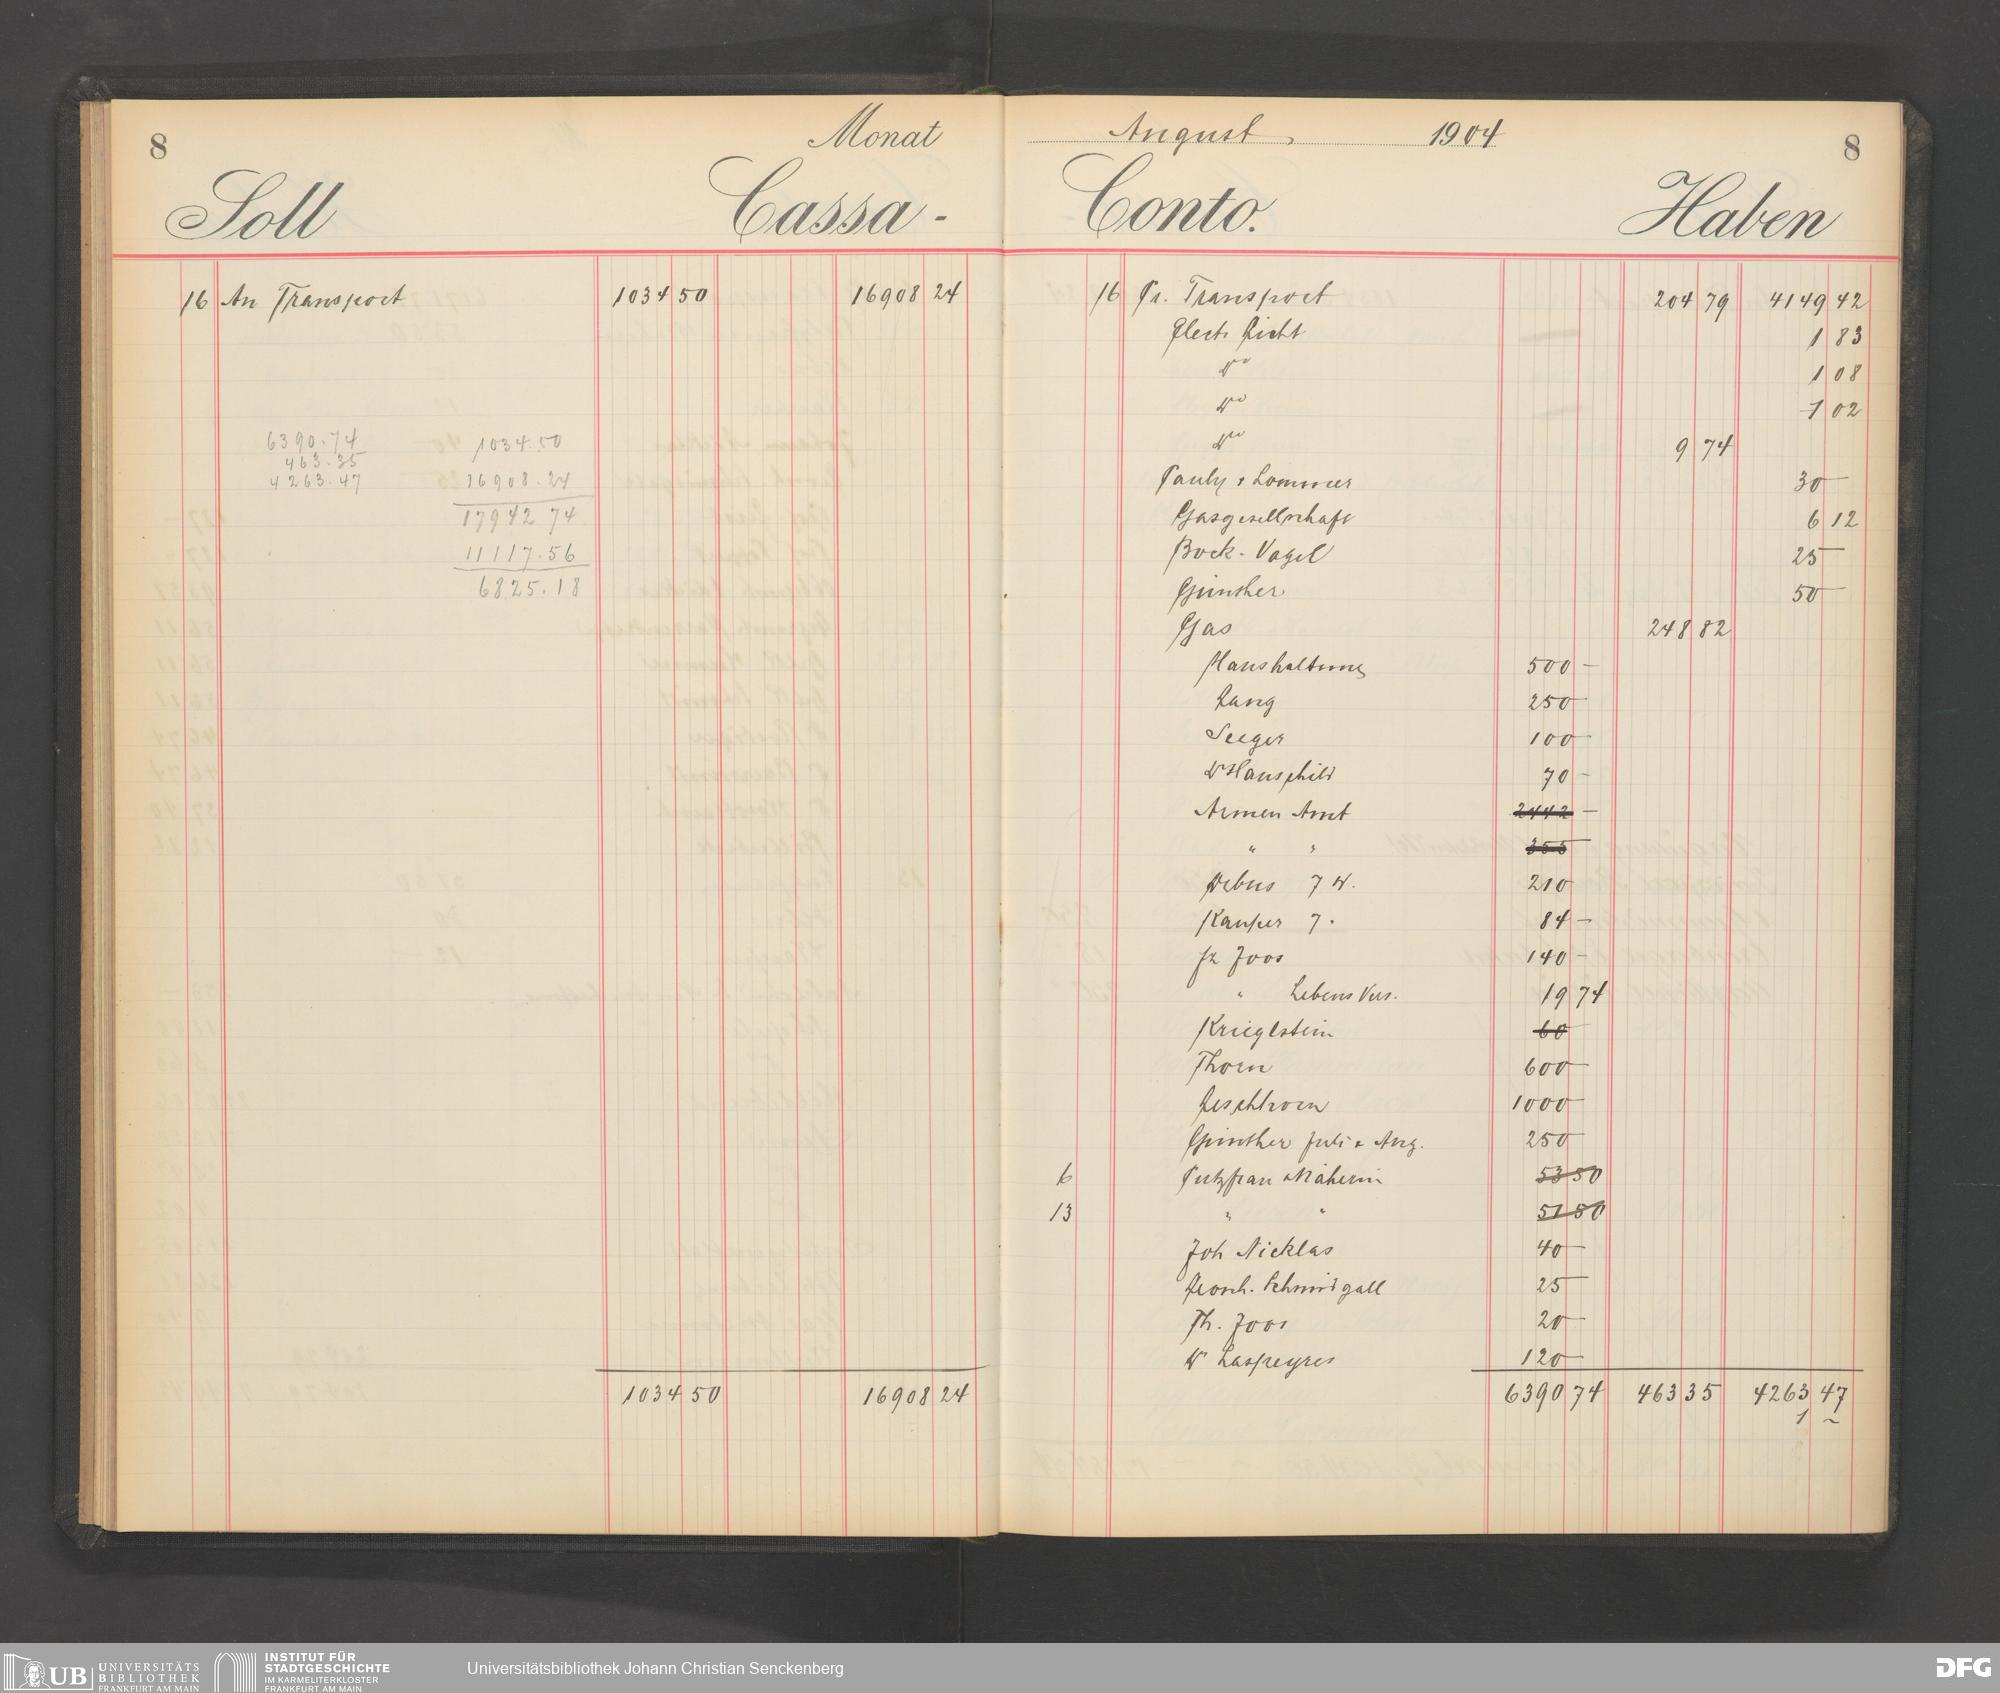 8
Monat
Soll
Cassa-
16 An Transport 1034 50 16908 24
6390.74
463.35
4263.47
1034.50
16908.24
17942 74
11117.56
6825.18
1034 50 16908 24
August 1904
8
Conto.
Haben
16 Pr. Transport 204 79 4149 42
Electr. Licht 1 83
do 1 08
do 1 02
do 9 74
Pauly & Lommer 30 —
Gasgesellschaft 6 12
Bock-Vogel 25 —
Günther 50 —
Gas 248 82
Haushaltung 500 —
Lang 250 —
Seeger 100 —
Dr Hauschild 70 —
Armen Amt 2442 —
" " 355 —
Debus 7 210
Kauper 7. 84 —
Fz Joos 140 —
" Lebens Vers. 19 74
Krieglstein 60
Thorn 600 —
Leschhorn 1000 —
Günther Juli & Aug. 250 —
6 Putzfrau & Näherin 53 50
13 " " 51 50
Joh Nicklas 40 —
Leonh. Schmidgall 25 —
Th. Joos 20 —
Dr Laspeyres 120 —
6390 74 463 35 4263 47
1 ~
UB UNIVERSITÄTS
BIBLIOTHEK
FRANKFURT AM MAIN
INSTITUT FÜR
STADTGESCHICHTE
IM KARMELITERKLOSTER
FRANKFURT AM MAIN
Universitätsbibliothek Johann Christian Senckenberg
DFG